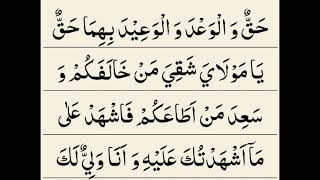 حَقٌّ وَ الْوَعْدَ وَ الْوَعِيْدَ بِهِمَا حَقٌّ
يَا مَوْلَايَ شَقِيَ مَنْ خَالَفَكُمْ وَ
سَعِدَ مَنْ اَطَاعَكُمْ فَاشْهَدْ عَلٰى
مَآ اَشْهَدْتُكَ عَلَيْهِ وَ اَنَا وَلِيٌّ لَكَ